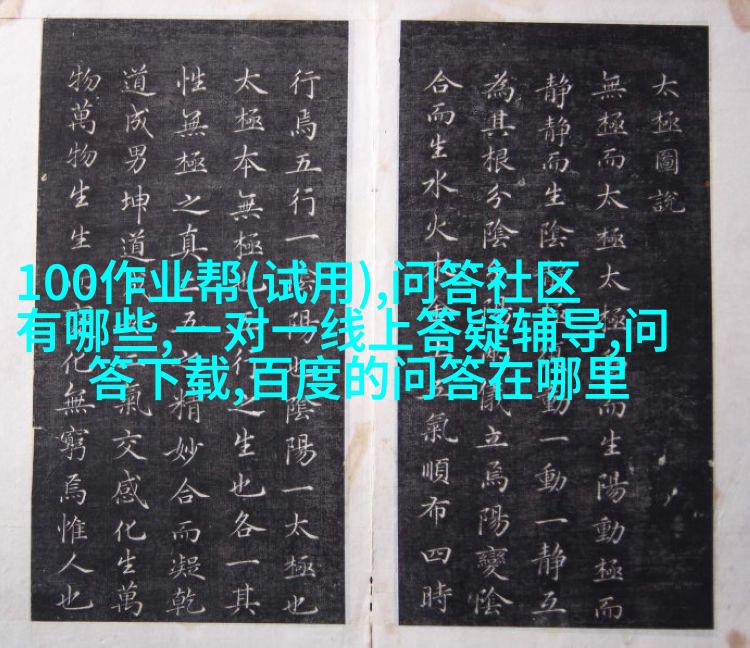 100作业帮(试用),问答社区
有哪些,一对一线上答疑辅导,问
答下载,百度的问答在哪里
太極圖說
無極而太極太極而生陽動極而
靜靜而生陰動一動一靜互
為其根分陰陽儀立焉陽變陰
合而生水火木氣順布四時
行焉五行一陰陽也陰陽一太極也
太極本無極也五行之生也各一其
性無極之真二五精妙合而凝乾
道成男坤道氣交感化生萬
物萬物生生化無窮焉惟人也